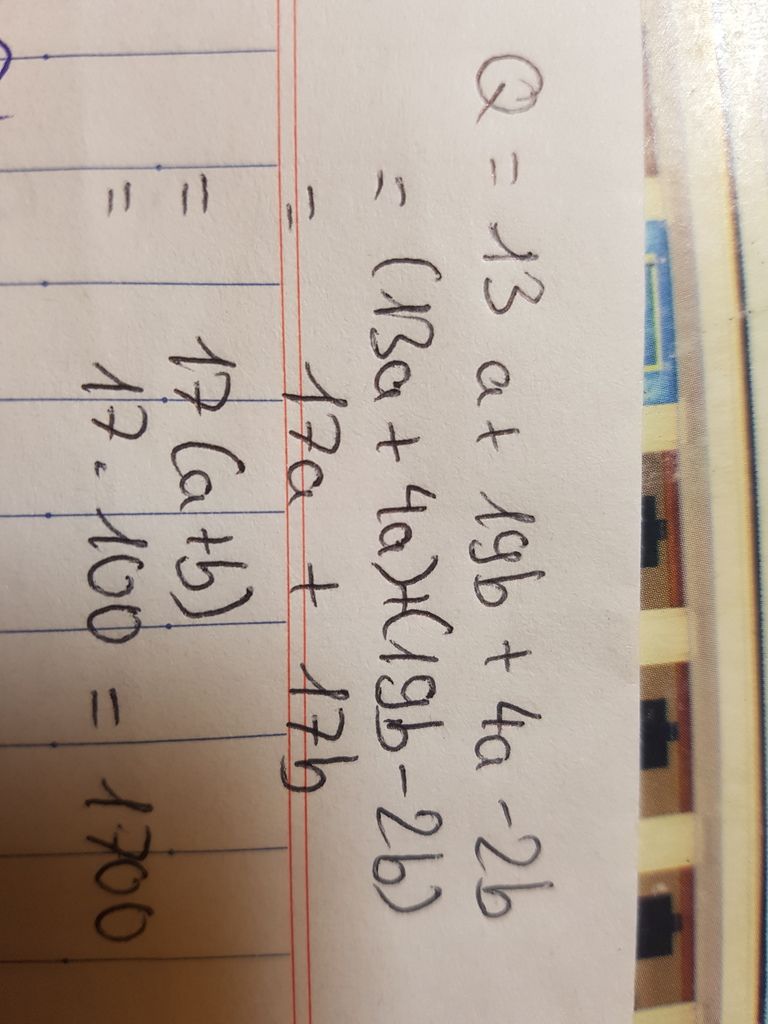 Q = 13 a + 19b + 4a - 2b
= (13a + 4a)+(19b - 2b)
= 17a + 17b
= 17 (a+b)
= 17 . 100 = 1700